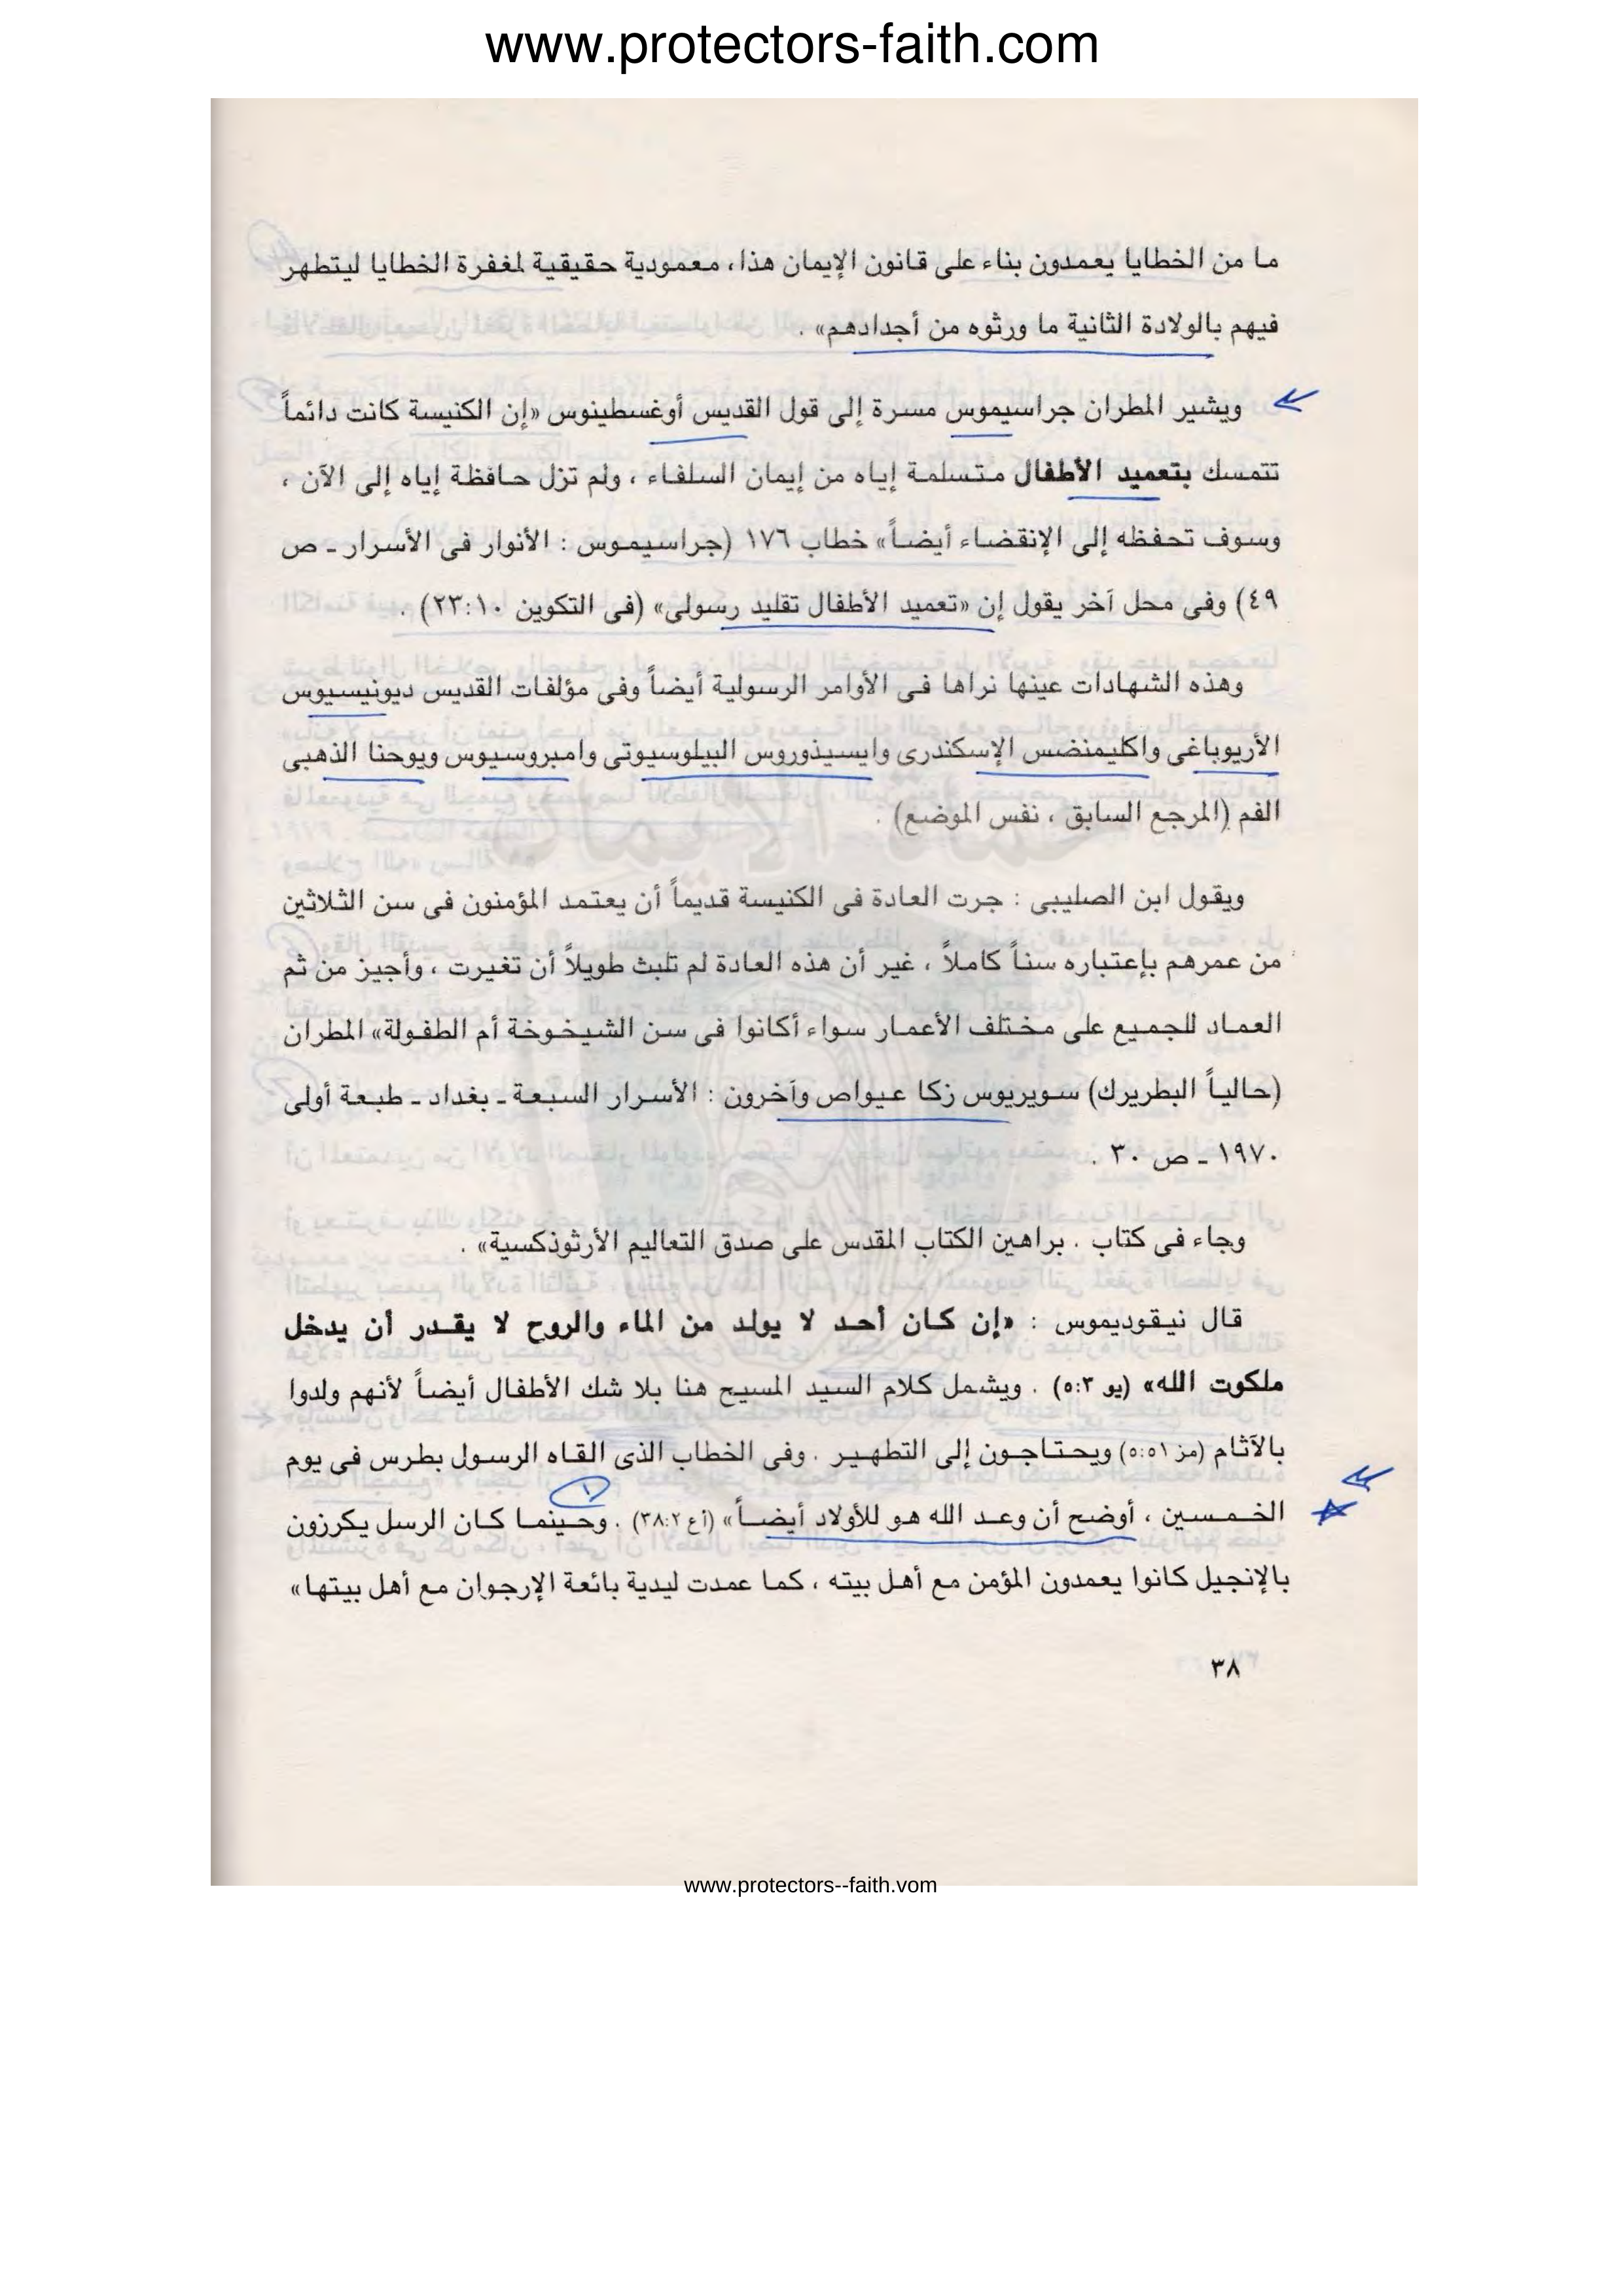 www.protectors-faith.com
ما من الخطايا يعمدون بناء على قانون الإيمان هذا، معمودية حقيقية لمغفرة الخطايا ليتطهر
فيهم بالولادة الثانية ما ورثوه من أجدادهم» .
ويشير المطران جراسيموس مسرة إلى قول القديس أوغسطينوس «إن الكنيسة كانت دائماً
تتمسك بتعميد الأطفال متسلمة إياه من إيمان السلفاء ، ولم تزل حافظة إياه إلى الآن ،
وسوف تحفظه إلى الإنقضاء أيضاً» خطاب ١٧٦ (جراسيموس : الأنوار فى الأسرار ـ ص
٤٩) وفى محل آخر يقول إن «تعميد الأطفال تقليد رسولى» (فى التكوين ٢٣:١٠) .
وهذه الشهادات عينها نراها فى الأوامر الرسولية أيضاً وفى مؤلفات القديس ديونيسيوس
الأريوباغى واكليمنضس الإسكندرى وايسيذوروس البيلوسيوتى وامبروسيوس ويوحنا الذهبى
الفم (المرجع السابق ، نفس الموضع) .
ويقول ابن الصليبى : جرت العادة فى الكنيسة قديماً أن يعتمد المؤمنون فى سن الثلاثين
من عمرهم بإعتباره سناً كاملاً ، غير أن هذه العادة لم تلبث طويلاً أن تغيرت ، وأجيز من ثم
العماد للجميع على مختلف الأعمار سواء أكانوا فى سن الشيخوخة أم الطفولة» المطران
(حالياً البطريرك) سويريوس زكا عيواص وآخرون : الأسرار السبعة ـ بغداد ـ طبعة أولى
١٩٧٠ ـ ص ٣٠ .
وجاء فى كتاب . براهين الكتاب المقدس على صدق التعاليم الأرثوذكسية» .
قال نيقوديموس : «إن كان أحد لا يولد من الماء والروح لا يقدر أن يدخل
ملكوت الله» (يو ٥:٣) . ويشمل كلام السيد المسيح هنا بلا شك الأطفال أيضاً لأنهم ولدوا
بالآثام (مز ٥:٥١) ويحتاجون إلى التطهير . وفى الخطاب الذى القاه الرسول بطرس فى يوم
١
الخمسين ، أوضح أن وعد الله هو للأولاد أيضاً» (أع ٣٨:٢) . وحينما كان الرسل يكرزون
بالإنجيل كانوا يعمدون المؤمن مع أهل بيته ، كما عمدت ليدية بائعة الإرجوان مع أهل بيتها»
٣٨
www.protectors--faith.vom